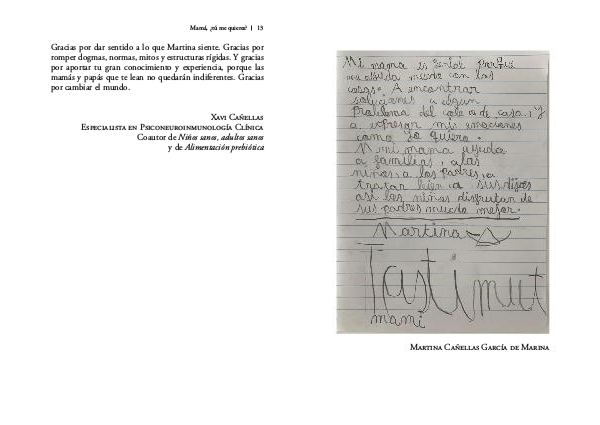 Mamá, ¿tú me quieres? | 13
Gracias por dar sentido a lo que Martina siente. Gracias por
romper dogmas, normas, mitos y estructuras rígidas. Y gracias
por aportar tu gran conocimiento y experiencia, porque las
mamás y papás que te lean no quedarán indiferentes. Gracias
por cambiar el mundo.
Xavi Cañellas
Especialista en Psiconeuroinmunología Clínica
Coautor de Niños sanos, adultos sanos
y de Alimentación prebiótica
Mi mama es genial porque
me ayuda mucho con las
cosas. A encontrar
soluciones a algun
problema del cole o de casa, y
a expresar mis emociones
como yo quiero.
Mi mama ayuda
a familias, a las
niñas, a los padres, a
tratar bien a sus hijos
asi los niños disfrutan de
sus padres mucho mejor.
Martina
T'estimut
mami
Martina Cañellas García de Marina